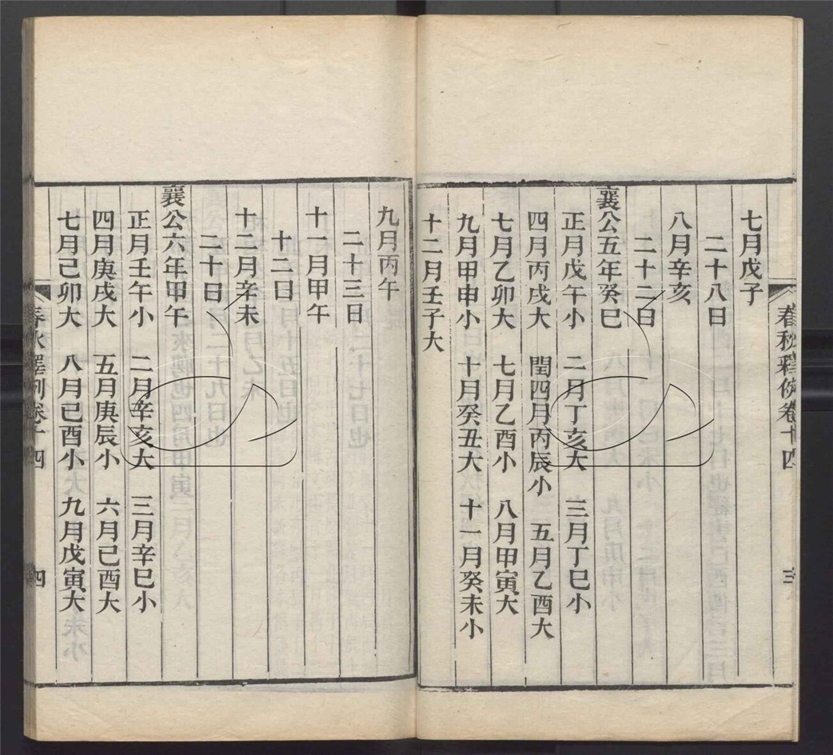 春秋釋例卷十四
三
七月戊子
二十八日
八月辛亥
二十二日
襄公五年癸巳
正月戊午小　二月丁亥大　三月丁巳小
四月丙戌大　閏四月丙辰小　五月乙酉大
七月乙卯大　七月乙酉小　八月甲寅大
九月甲申小　十月癸丑大　十一月癸未小
十二月壬子大
九月丙午
二十三日
十一月甲午
十二日
十二月辛未
二十日
襄公六年甲午
正月壬午小　二月辛亥大　三月辛巳小
四月庚戌大　五月庚辰小　六月己酉大
七月己卯大　八月己酉小　九月戊寅大
春秋釋例卷十四
四